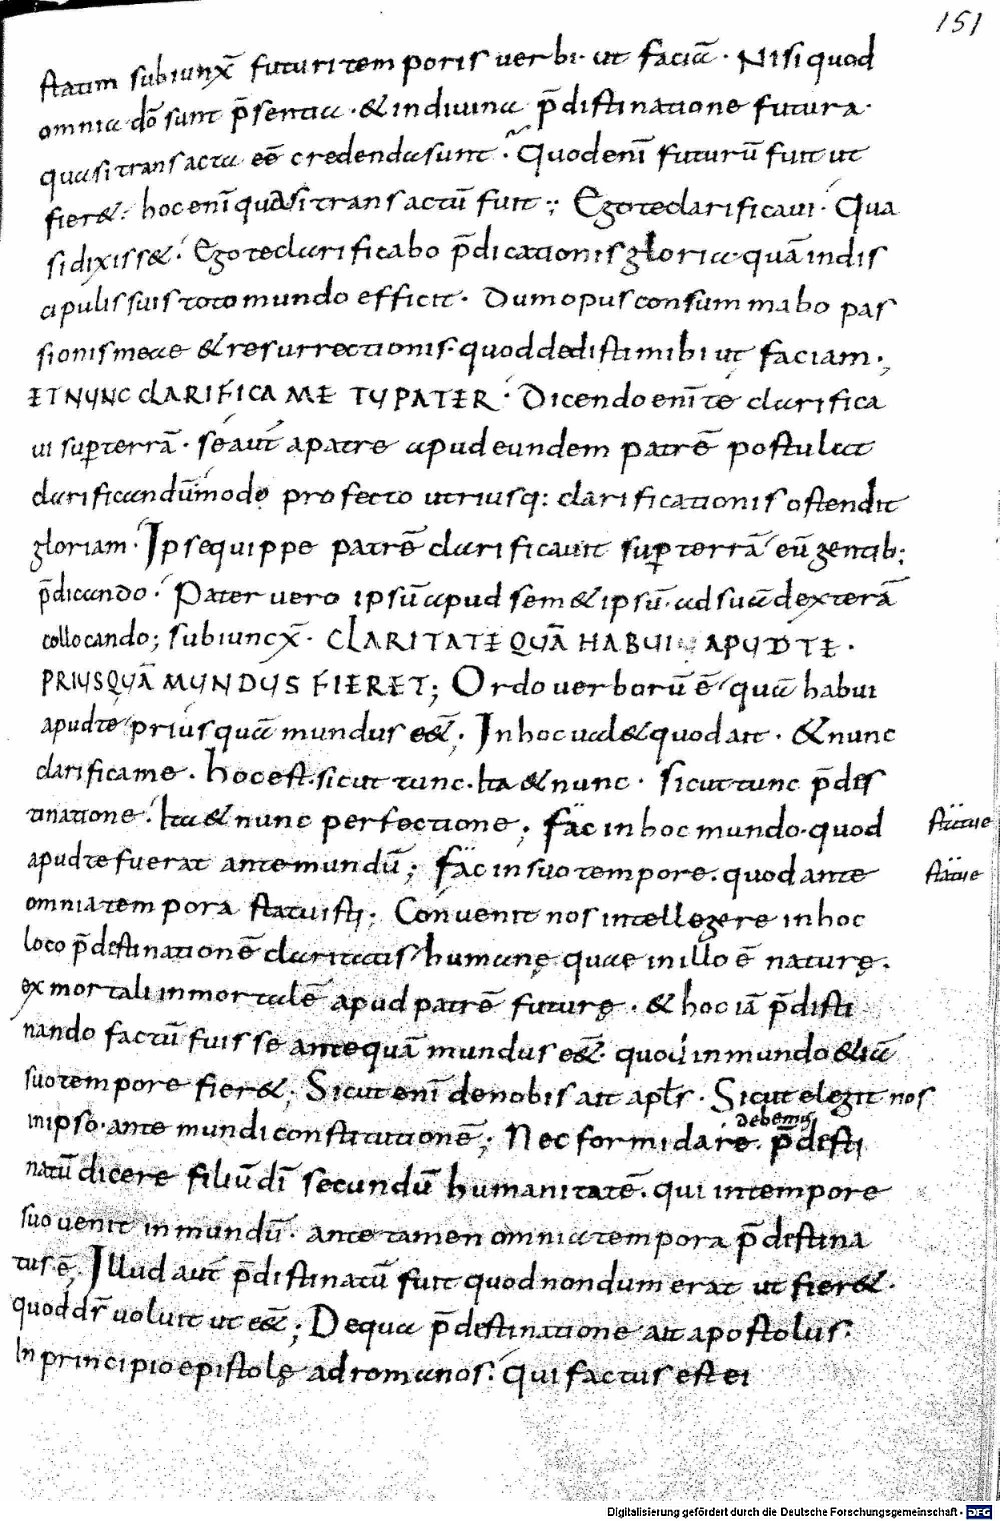 151
statim subiunx̄ futuri temporis verbi· ut faciā· Nisi quod
omnia dō sunt p̄sentia· & in divina p̄distinatione futura·
quasi transacta eē credenda sunt· Quod enī futurū fuit ut
fier&· hoc enī quasi transactū fuit·; Ego te clarificavi· Qua
si dixiss&· Ego te clarificabo p̄dicationis gloria· quā in dis
cipulis suis toto mundo efficit· Dum opus consummabo pas
sionis meae & resurrectionis· quod dedisti mihi ut faciam·,
ET NUNC CLARIFICA ME TU PATER· Dicendo enī te clarifica
vi sup terrā· se aut̄ a patre apud eundem patrē postulat
clarificandū· modo profecto utriusq: clarificationis ostendit
gloriam· Ipse quippe patrē clarificavit sup terrā eū gentib:
p̄dicando· Pater vero ipsū apud sem&ipsū· ad suā dexterā
collocando; subiuncx̄· CLARITATE QUĀ HABUI APUD TE·
PRIUSQUĀ MUNDUS FIERET; Ordo verborū ē quā habui
apud te priusquā mundus eē&; In hoc val& quod ait· & nunc
clarifica me· hoc est· sicut tunc· Ita & nunc· Sicut tunc p̄des
tinatione· Ita & nunc perfectione; fac in hoc mundo· quod
statue
apud te fuerat ante mundū; fac in suo tempore· quod ante
statue
omnia tempora statuisti· Convenit nos intellegere in hoc
loco p̄destinationē claritatis humanę quae in illo ē naturę·
ex mortali inmortalē apud patrē futurę· & hoc iā p̄disti
nando factū fuisse antequā mundus eē&· quod in mundo &iā
suo tempore fier&; Sicut enī de nobis ait apl̄s· Sicut elegit nos
in ipso· ante mundi constitutionē; Nec formidare· p̄desti
debemus
natū dicere filiū dī secundū humanitatē· qui in tempore
suo venit in mundū· ante tamen omnia tempora p̄destina
tus ē; Illud aut̄ p̄distinatū fuit quod nondum erat ut fier&·
quod dr̄ voluit ut eē&; De qua p̄destinatione ait apostolus:
In principio epistolę ad romanos: Qui factus est ei
Digitalisierung gefördert durch die Deutsche Forschungsgemeinschaft - DFG